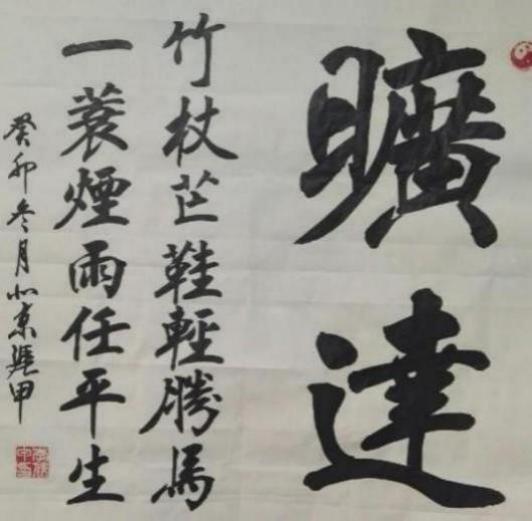 曠達
竹杖芒鞋輕勝馬
一蓑煙雨任平生
癸卯冬月